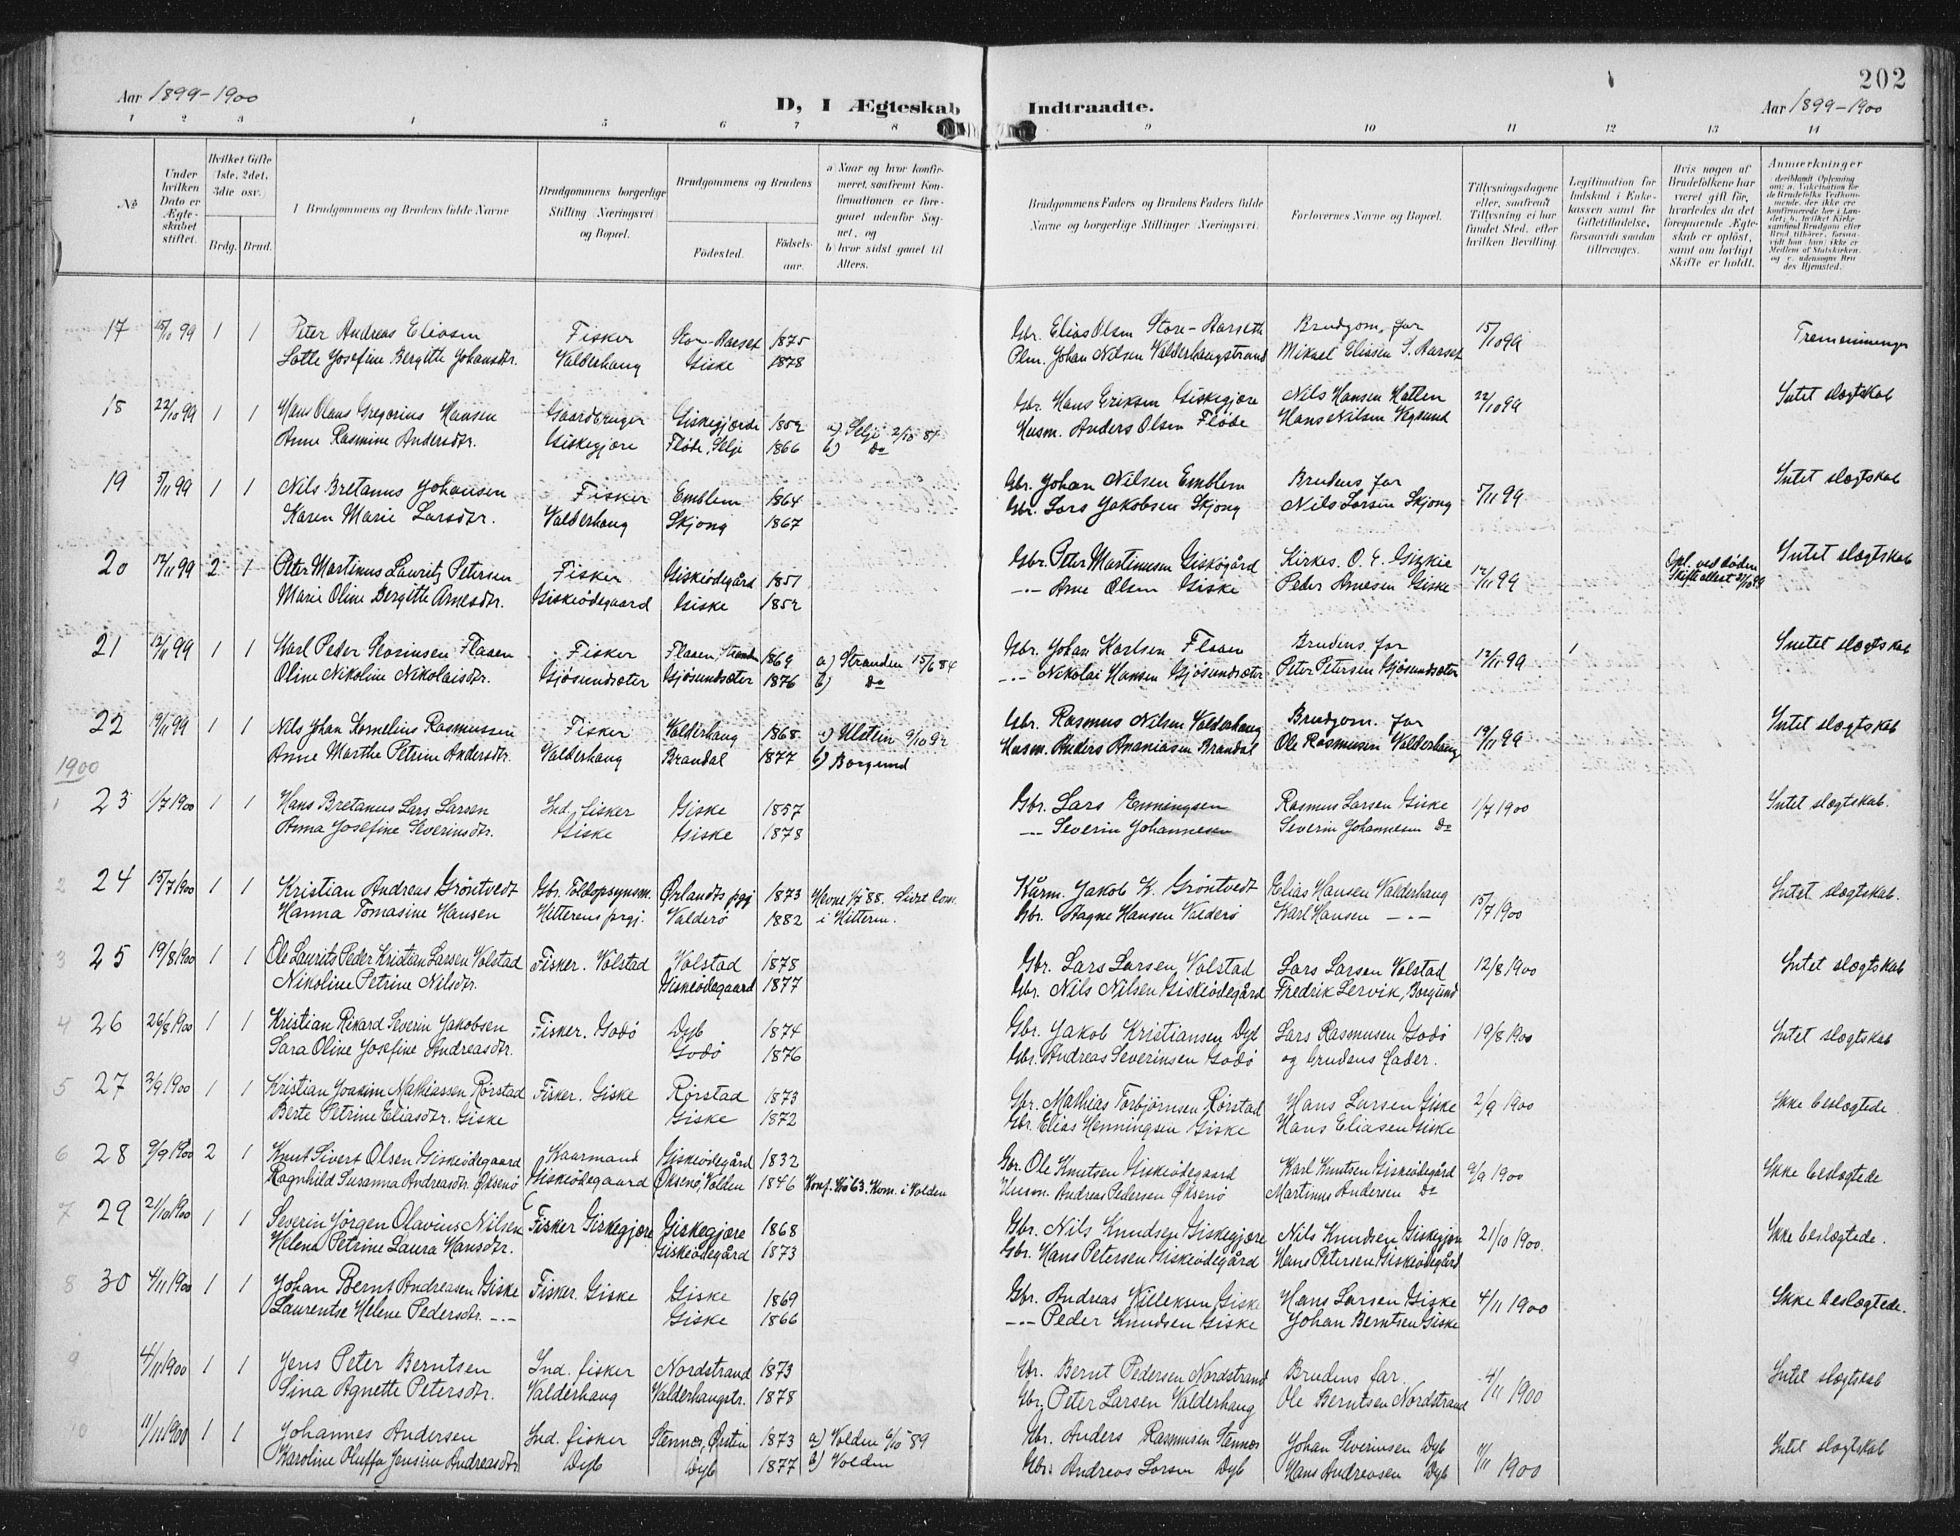 202
Aar 1899-1900
D, I Ægteskab Indtraadte.
Aar 1899-1900
1 2 3 4 5 6 7 8 9 10 11 12 13 14
№
Under hvilken Dato er Ægteskabet stiftet.
Hvilket Gifte 1ste, 2det, 3die osv.
Brdg. Brud.
I Brudgommens og Brudens fulde Navne
Brudgommens borgerlige Stilling Næringsvei og Bopæl.
Brudgommens og Brudens
Fødested.
Fødselsaar.
a Naar og hvor konfirmeret, saafremt Konfirmationen er foregaaet udenfor Sognet, og
b hvor sidst gaaet til Alters.
Brudgommens Faders og Brudens Faders fulde Navne og borgerlige Stillinger Næringsvei.
Forlovernes Navne og Bopæl.
Tillysningsdagene eller, saafremt Tillysning ei har fundet Sted, efter hvilken Bevilling.
Legitimation for Indskud i Enkekassen samt for Giftetilladelse, forsaavidt saadan tiltrænges.
Hvis nogen af Brudefolkene har været gift før, hvorledes da det foregaaende Ægteskab er opløst, samt om lovligt Skifte er holdt.
Anmærkninger
17 15/10 99 1 1 Peter Andreas Eliasen Fisker Store-Aarset 1875 Gbr. Elias Olsen Store-Aarseth Brudgom. far 15/10 99 Tremenninger
Lotte Josefine Bergitte Johansdtr. Valderhaug Giske 1878 Plm. Johan Nilsen Valderhaugstrand Mikael Eliasen S. Aarset
18 22/10 99 1 1 Hans Olaus Gregorius Hansen Gaardbruger Giskegjærde 1852 a) Selje 2/10 81 Gbr. Hans Eriksen Giskegjære Nils Hansen Hatlen 22/10 99 Intet slægtskab
Anne Rasmine Andersdtr. Giskegjære Fløde, Selje 1866 b) Do Husm. Anders Olsen Fløde Hans Nilsen Vegsund
19 5/11 99 1 1 Nils Bretanus Johansen Fisker Emblem 1864 Gbr. Johan Nilsen Emblem Brudens far 5/11 99 Intet slægtskab
Karen Marie Larsdtr. Valderhaug Skjong 1867 Gbr. Lars Jakobsen Skjong Nils Larsen Skjong
20 12/11 99 2 1 Peter Martinus Lauritz Petersen Fisker Giskeødegård 1851 Gbr. Peter Martinusen Giskøgård Kirkes. O. E. Gizkie 12/11 99 Opl. ved døden Intet slægtskab
Marie Oline Bergitte Arnesdtr. Giskeødegaard Giske 1852 --- Arne Olsen Giske Peder Arnesen Giske
21 12/11 99 1 1 Karl Peder Flaaen Fisker Flaaen, Strand 1869 a) Stranden 15/6 84 Gbr. Johan Karlsen Flaaen Brudens far 12/11 99 1 Intet slægtskab
Oline Nikoline Nikolaisdtr. Gjøsundsæter Gjøsundsæter 1876 b) Do --- Nikolai Hansen Gjøsundsæter Peter Petersen Gjøsundsæter
22 19/11 99 1 1 Nils Johan Kornelius Rasmussen Fisker Valderhaug 1868 a) Ulstein 9/10 92 Gbr. Rasmus Nilsen Valderhaug Brudgom. far 19/11 99 Intet slægtskab
Anne Marthe Petrine Andersdtr. Valderhaug Brandal 1877 b) Borgund Husm. Anders Ananiasen Brandal Ole Rasmusen Valderhaug
1900
1 23 1/7 1900 1 1 Hans Bretanus Lars Larsen Ind. fisker Giske 1857 Gbr. Lars Enningsen Rasmus Larsen Giske 1/7 1900 Intet slægtskab.
Anna Josefine Severinsdtr. Giske Giske 1878 --- Severin Johannesen Severin Johannesen Do
2 24 15/7 1900 1 1 Kristian Andreas Grøntvedt Gbr. Toldopsynsm. Ørlandts prgj 1873 Hevne Gbr. Jakob K. Grøntvedt Elias Hansen Valderhaug 15/7 1900 Intet slægtskab.
Hanna Tomasine Hansen Hitterens prgj. Valderø 1882 i Hitteren. Gbr. Hansen Valderø Karl Hansen ---
3 25 19/8 1900 1 1 Ole Laurits Peder Kristian Larsen Valstad Fisker. Valstad Valstad 1878 Gbr. Lars Larsen Valstad Lars Larsen Valstad 12/8 1900 Intet slægtskab
Nikoline Petrine Nilsdtr. Giskeødegaard 1877 Gbr. Nils Nilsen Giskeødegård Fredrik Lervik, Borgund
4 26 26/8 1900 1 1 Kristian Rikard Severin Jakobsen Fisker. Godø Dyb 1874 Gbr. Jakob Kristiansen Dyb Lars Rasmusen Godø 19/8 1900 Intet slægtskab
Sara Oline Josefine Andreasdtr. Godø 1876 Gbr. Andreas Severinsen Godø og brudens fader.
5 27 2/9 1900 1 1 Kristian Joakim Mathiassen Rørstad Fisker. Giske Rørstad 1873 Gbr. Mathias Torbjørnsen Rørstad Hans Larsen Giske 2/9 1900 Ikke beslægtede
Berte Petrine Eliasdtr. Giske Giske 1872 Gbr. Elias Henningsen Giske Hans Eliasen Giske
6 28 9/9 1900 2 1 Knut Sivert Olsen Giskeødegaard Kaarmand Giskeødegård 1832 Gbr. Ole Knutsen Giskeødegaard Karl Knutsen Giskeødegård 9/9 1900 Ikke beslægtede
Ragnhild Susanna Andreasdtr. Øksenø Giskeødegaard Øksenø, Volden 1846 Konf. 63. Kom. i Volden Husm. Andreas Pedersen Øksenø Martinus Andersen Do
7 29 21/10 1900 1 1 Severin Jørgen Olavius Nilsen Fisker Giskegjære Giskegjære 1868 Gbr. Nils Knudsen Giskegjære Nils Knudsen Giskegjære 21/10 1900. Ikke beslægtede.
Helena Petrine Laura Hansdtr. Giskeødegård 1873 Gbr. Hans Petersen Giskeødegård Hans Petersen Giskeødegård
8 30 4/11 1900 1 1 Johan Bernt Andreasen Giske Fisker. Giske Giske 1869 Gbr. Andreas Villeksen Giske Hans Larsen Giske 4/11 1900 Ikke beslægtede.
Laurentse Helene Pedersdtr. --- Giske 1866 --- Peder Knudsen Giske Johan Berntsen Giske
9 4/11 1900 1 1 Jens Peter Berntsen Ind. fisker Nordstrand 1873 Gbr. Bernt Pedersen Nordstrand Brudens far. 4/11 1900 Intet slægtskab
Sina Agnette Petersdtr. Valderhaug Valderhaugstr. 1878 Gbr. Peter Larsen Valderhaug Ole Berntsen Nordstrand
10 11/11 1900 1 1 Johannes Andersen Ind. fisker Stennes, Ørsten 1873 a) Volden 6/10 89 Gbr. Anders Rasmusen Stennes Johan Severinsen Dyb 11/11 1900 Intet slægtskab
Karoline Oluffa Jensine Andreasdtr Dyb Dyb 1877 b) Volden Gbr. Andreas Larsen Dyb Hans Andreasen Dyb